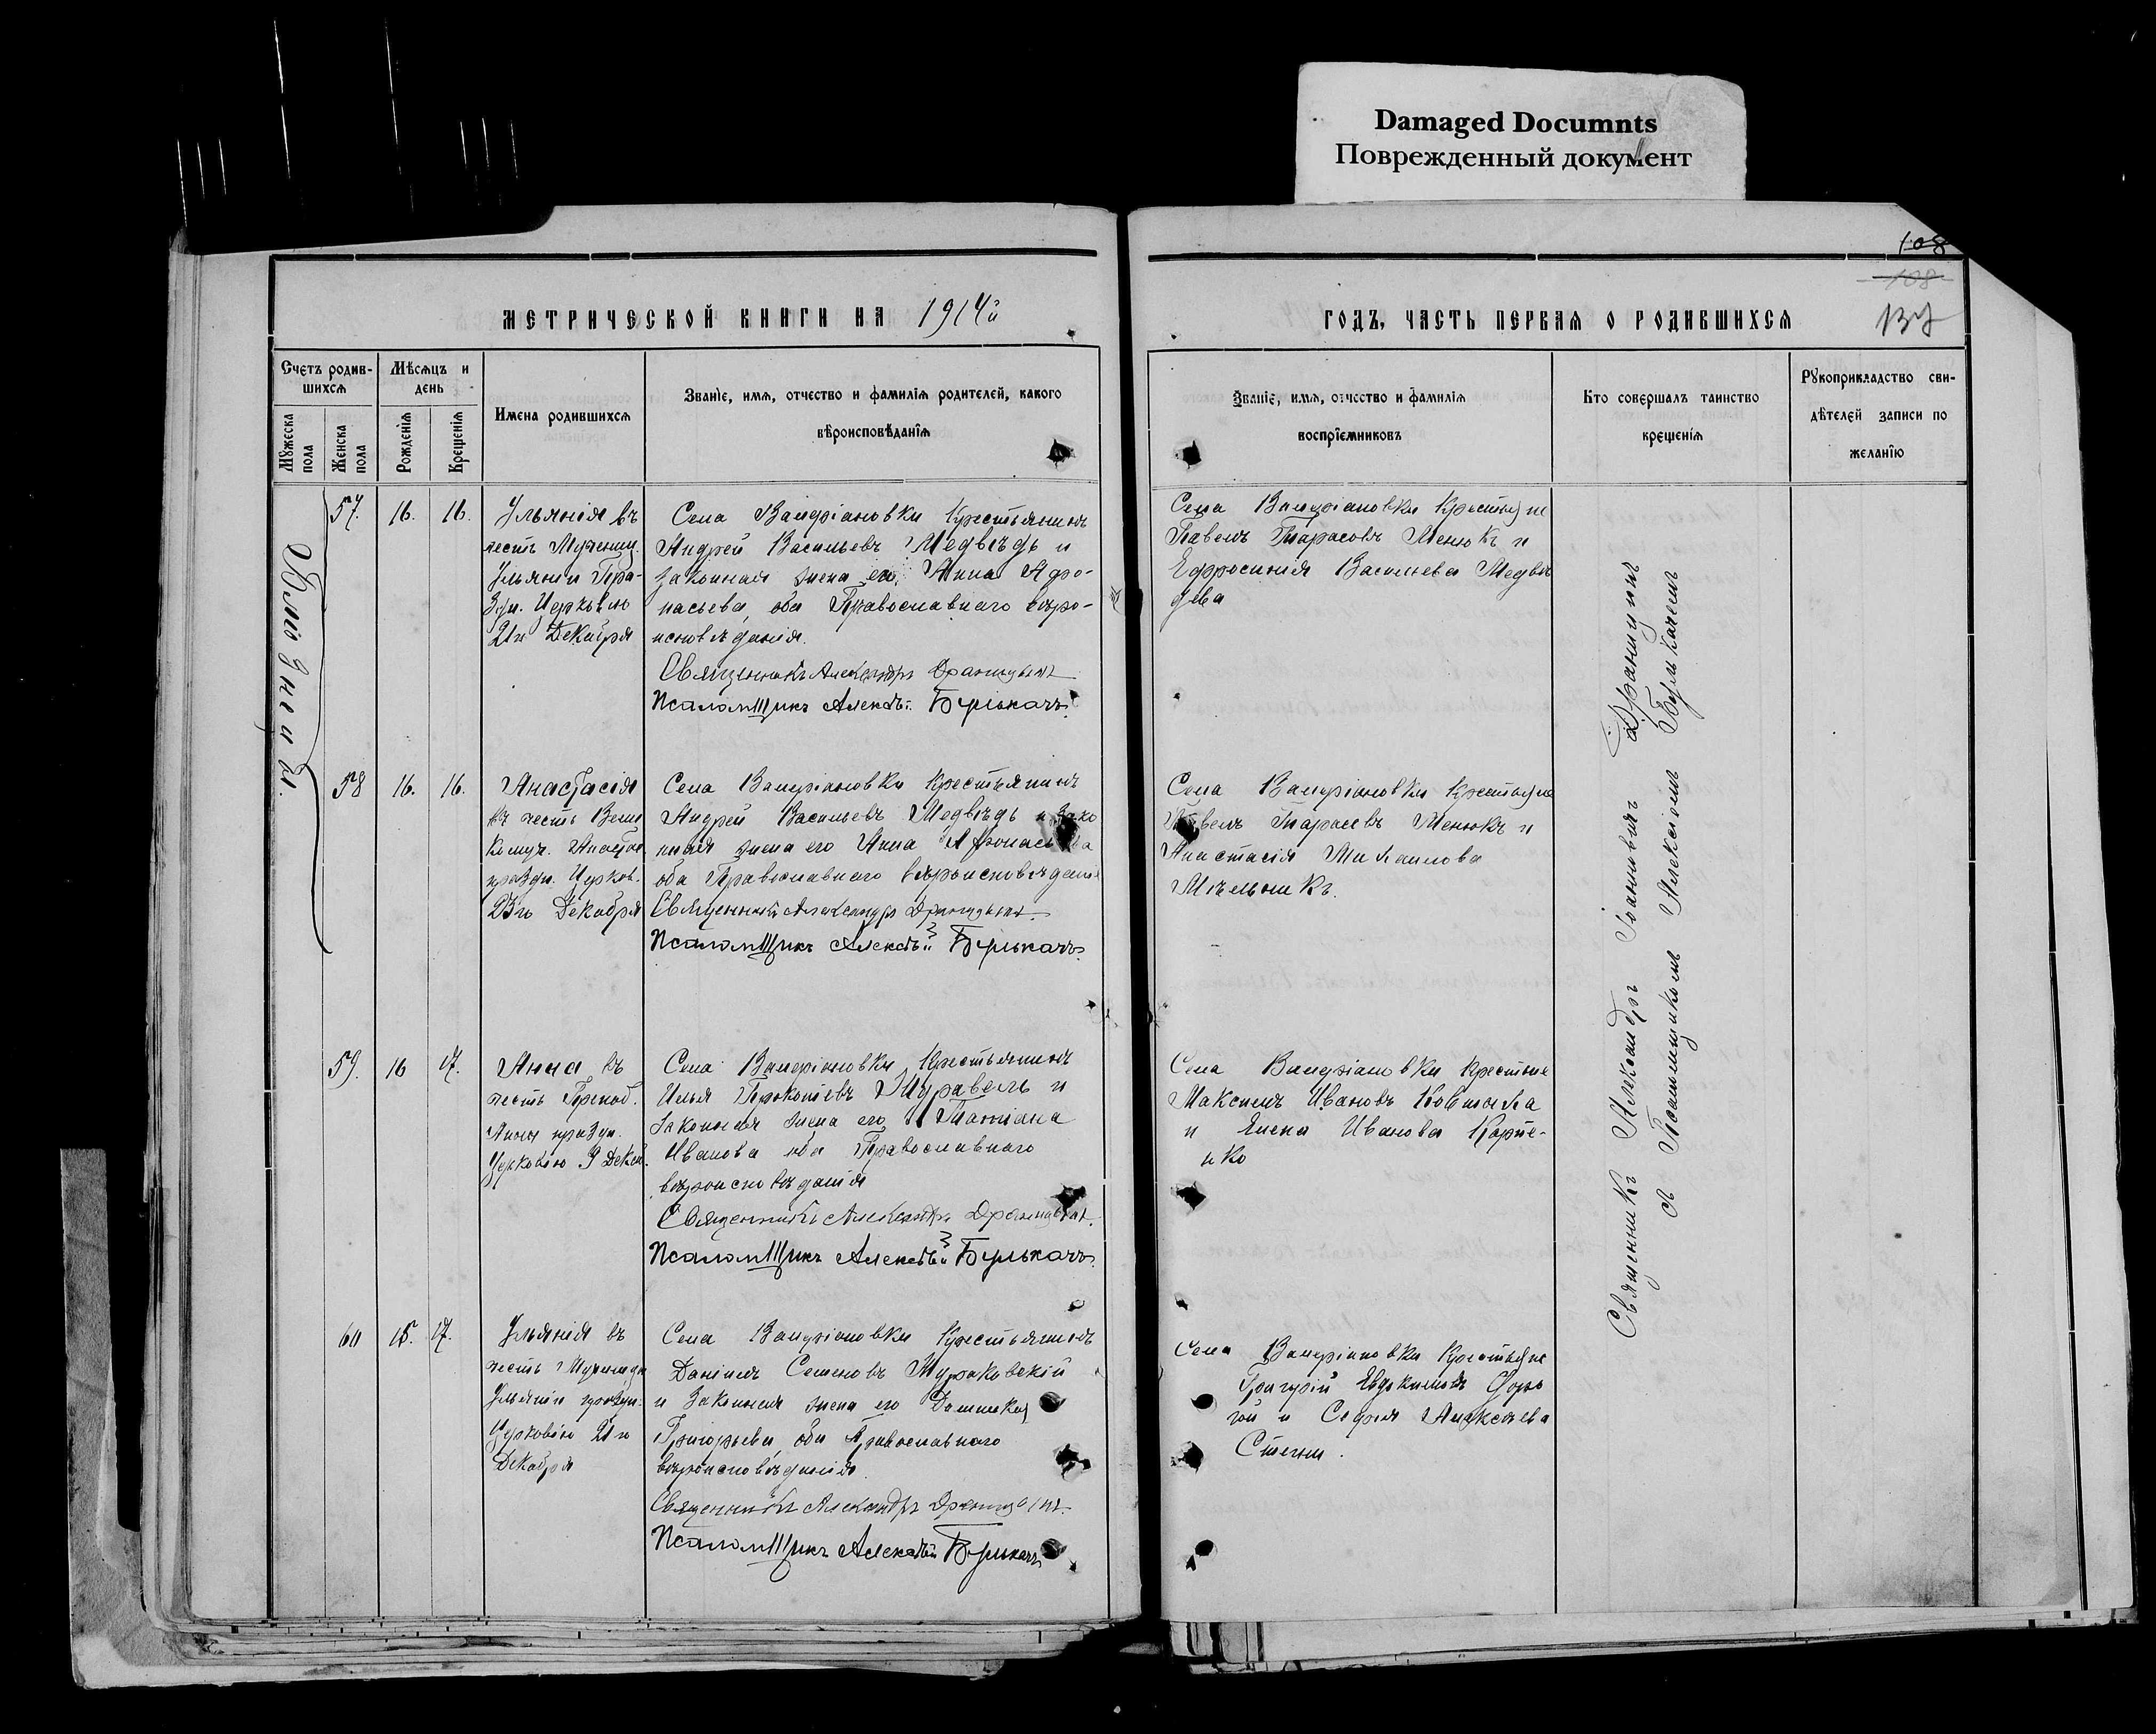 Damaged Documnts
Поврежденный документ
108
108
137
МЕТРИЧЕСКОЙ КНИГИ НА 1914й
ГОДЪ, ЧАСТЬ ПЕРВАЯ О РОДИВШИХСЯ
Счетъ родив-
шихся
Мѣсяцъ и
день
Мужеска
пола
Женска
пола
Рожденія
Крещенія
Имена родившихся
Званіе, имя, отчество и фамилія родителей, какого
вѣроисповѣданія
Званіе, имя, отчество и фамилія
воспріемниковъ
Кто совершалъ таинство
крещенія
Рукоприкладство сви-
дѣтелей записи по
желанію
57. 16. 16.
Ульянія въ
честь Мучениц.
Ульянии Пра-
здн. Церковью
21го Декабря
Села Валеріановки Крестьянинъ
Андрей Васильевъ Медвѣдь и
законная жена его Анна Афо-
насьева, оба Православнаго вѣро-
исповѣданія.
Священникъ Александръ
Псаломщикъ Алексѣй Булькачъ
Села Валеріановки Крестьяне
Павелъ Тарасовъ Менюкъ и
Ефросинія Васильева Медвѣ
дева
58 16. 16.
Анастасія
въ честь Вели
комуч. Анастас.
праздн. Церков.
23го Декабря
Села Валеріановки Крестьянинъ
Андрей Васильевъ Медвѣдь и зако
нная жена его Анна Афонасьева
оба Православнаго вѣроисповѣданія
Священникъ Александръ
Псаломщикъ Алексѣй Булькачъ
Села Валеріановки Крестьяне
Павелъ Тарасевъ Менюкъ и
Анастасія Михаилова
Мѣльникъ.
59. 16 17.
Анна въ
честь Препод.
Анны праздн.
Церковію 9 Декаб.
Села Валеріановки Крестьянинъ
Илья Прокопіевъ Журавель и
законная жена его Татіана
Иванова оба Православнаго
вѣроисповѣданія
Священникъ Александръ
Псаломщикъ Алексѣй Булькачъ
Села Валеріановки Крестьяне
Максимъ Ивановъ
и Елена Иванова Карпе-
нко
60 15. 17.
Ульянія въ
честь Мученицы
Ульянии праздн.
Церковію 21го
Декабря
Села Валеріановки Крестьянинъ
Даніилъ Семеновъ Мураковскій
и Законная жена его Домникія
Григорьева, оба Православнаго
вѣроисповѣданія.
Священникъ Александръ
Псаломщикъ Алексѣй Булькачъ
Села Валеріановки Крестьяне
Григорій Евдокимовъ
и Софія Алексѣева
Священникъ Александръ Іоанновичъ
съ Псаломщикомъ Алексіемъ Булькачемъ